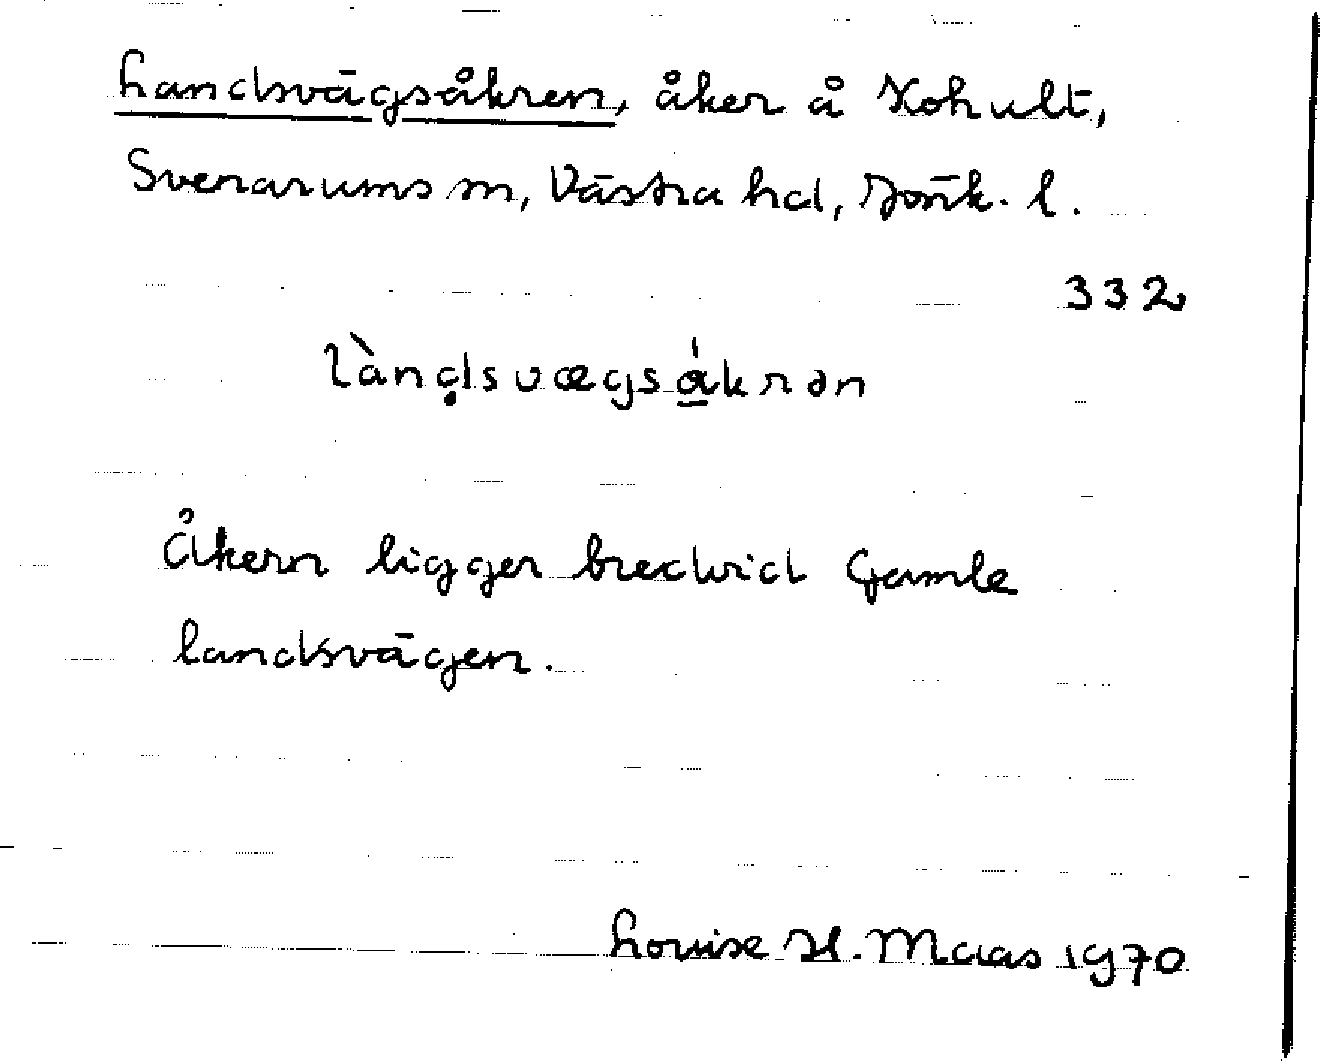 Landsvägsåkren, åker å Kohult,
Svenarums sn, Västra hd, Jönk. l.
332
làndsvægsákrən
Åkern ligger bredvid Gamle
landsvägen.
Louise H. Maas 1970